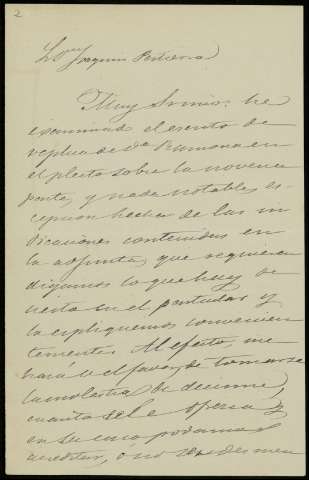 2
Joaquin
Muy Sr mio: he
examinado el escrito de
replica de Dª Ramona en
el pleito sobre la novena
parte, y nada notable, es
cepcion hecha de las in
dicaciones contenidas en
la adjunta, que requieren
digamos lo que hay de
cierto en el particular y
la expliquemos convenien
temente. Al efecto, me
hará V. el favor de tomarse
la molestia de decirme,
cuanto se le ofrezca y
en su caso podamos
acreditar, ó no